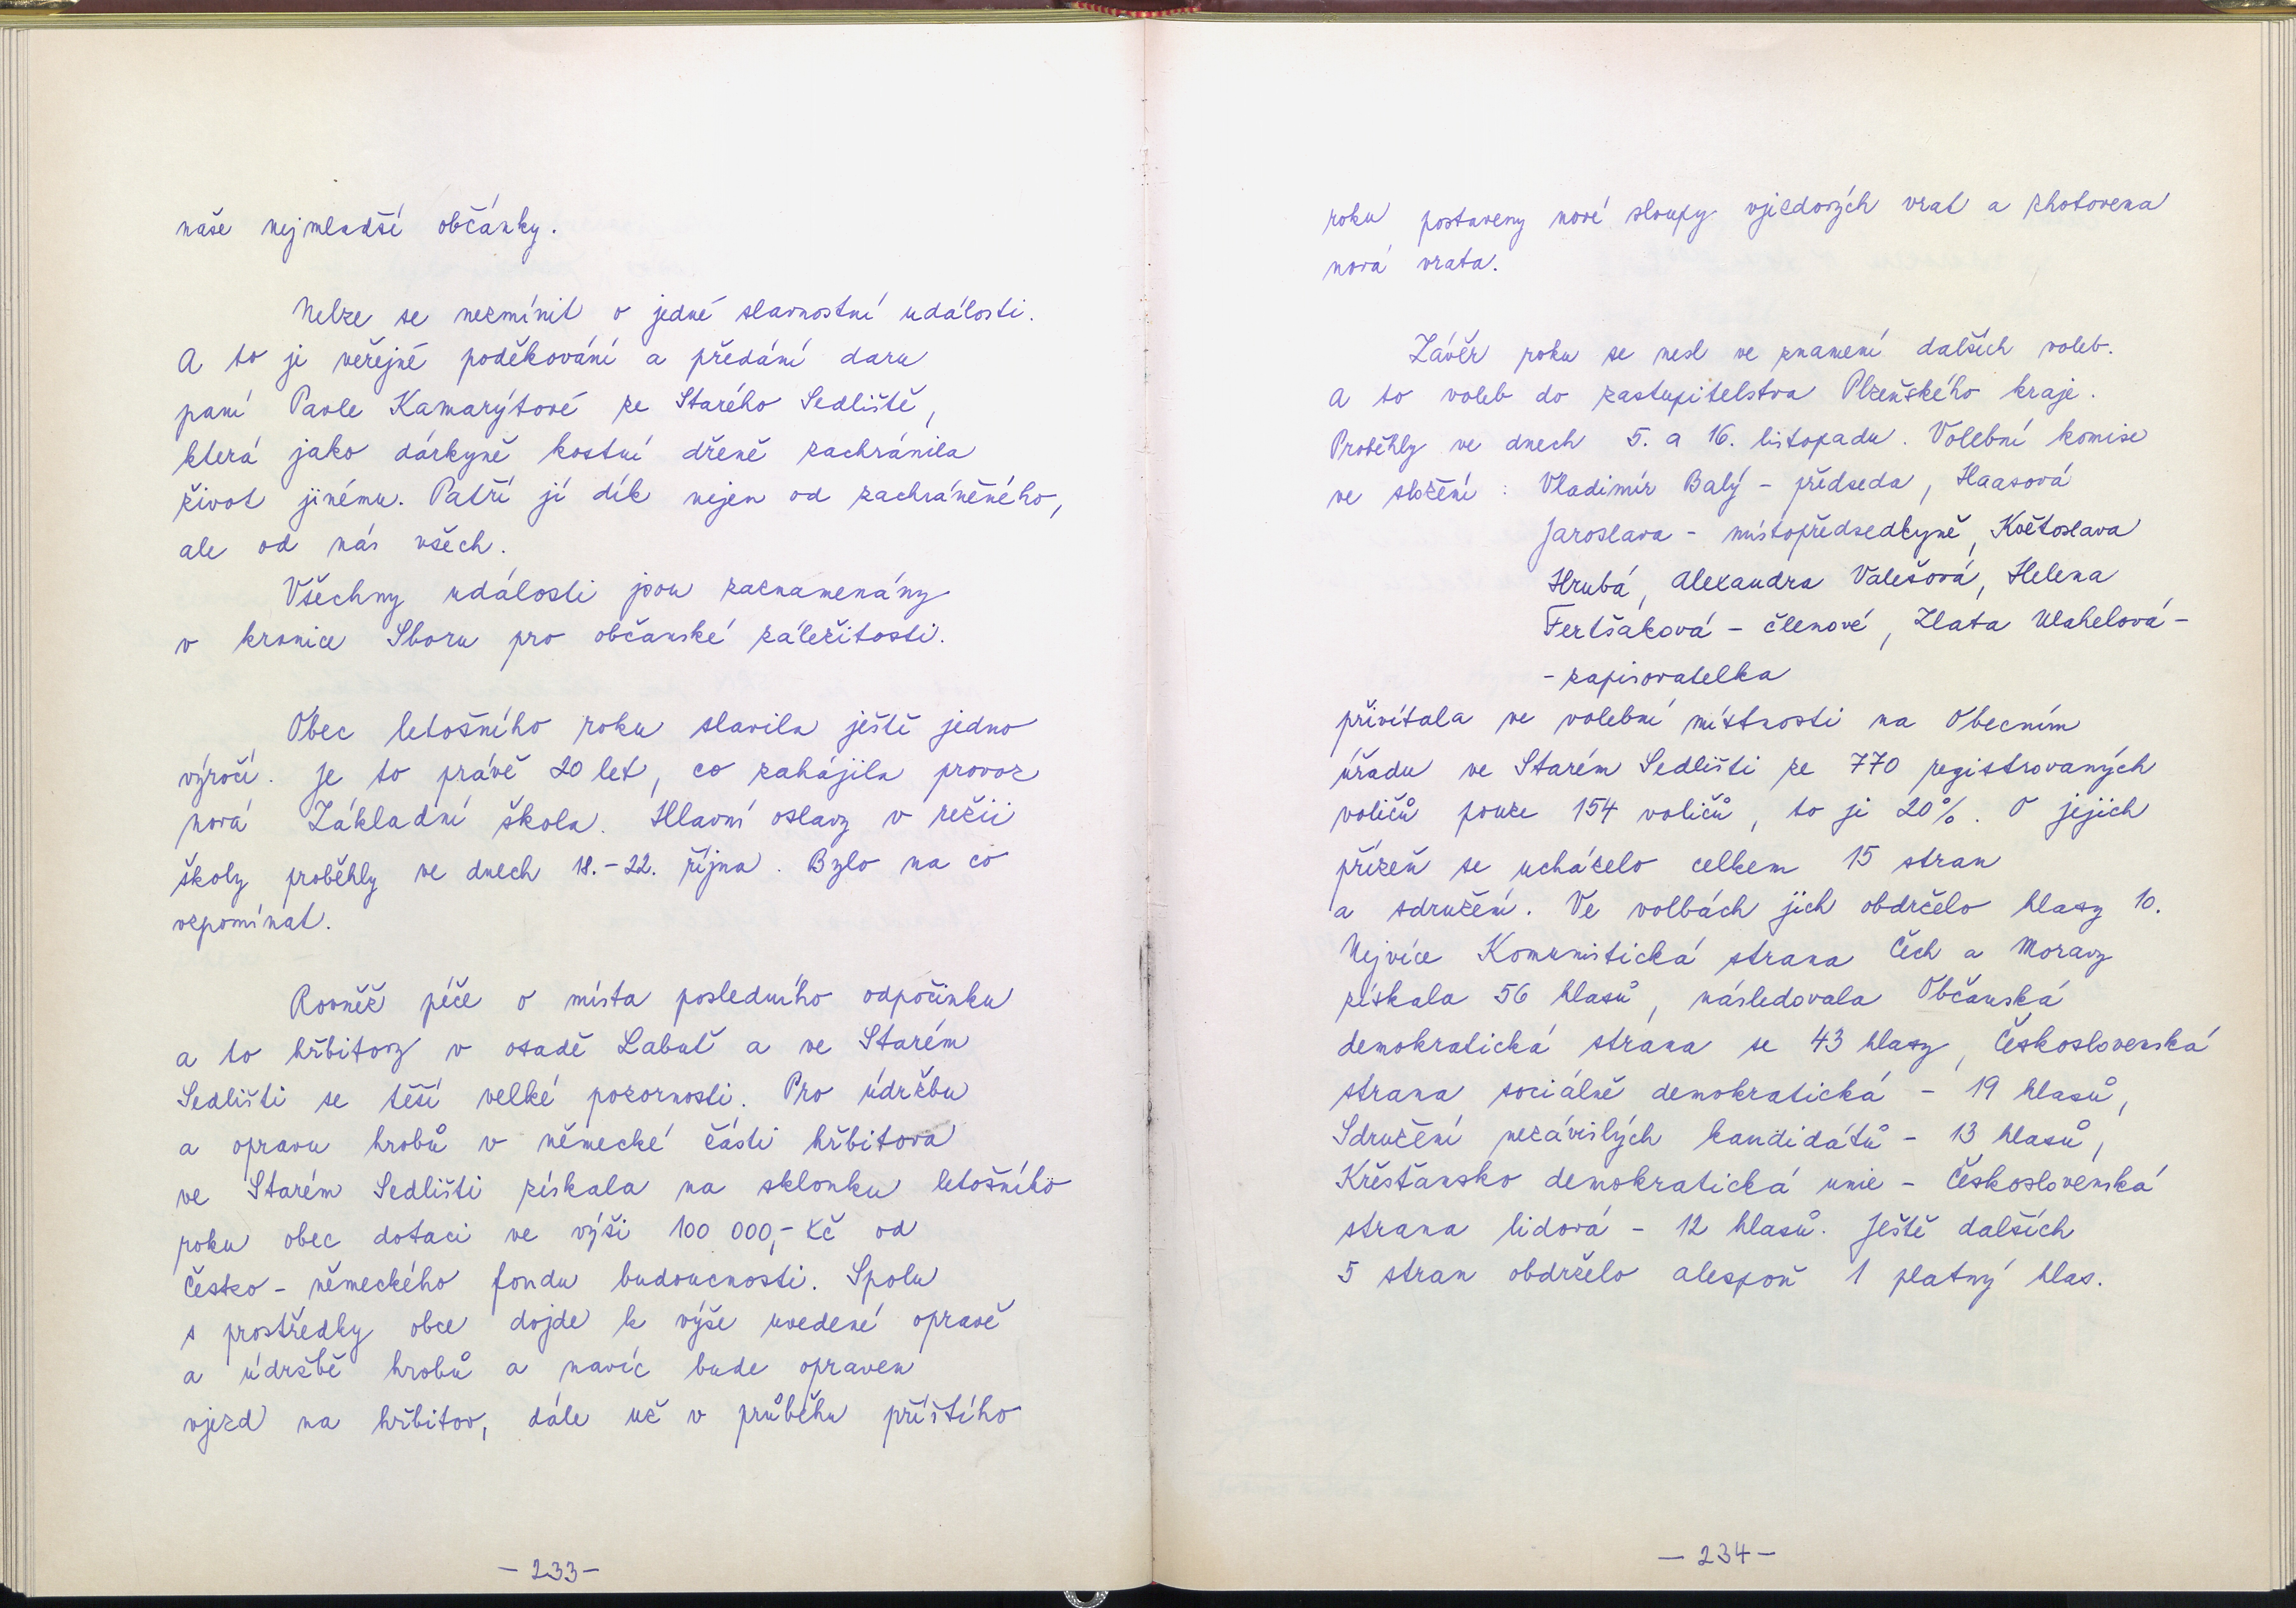 naše nejmladší občánky.
Nelze se nezmínit o jedné slavnostní události.
A to je veřejné poděkování a předání daru
paní Pavle Kamarýtové ze Starého Sedliště,
která jako dárkyně kostní dřeně zachránila
život jinému. Patří jí dík nejen od zachráněného,
ale od nás všech.
Všechny události jsou zaznamenány
v kronice Sboru pro občanské záležitosti.
Obec letošního roku slavila ještě jedno
výročí. Je to právě 20 let, co zahájila provoz
nová Základní škola. Hlavní oslavy v režii
školy proběhly ve dnech 18.-22. října. Bylo na co
vzpomínat.
Rovněž péče o místa posledního odpočinku
a to hřbitovy v osadě Labuť a ve Starém
Sedlišti se těší velké pozornosti. Pro údržbu
a opravu hrobů v německé části hřbitova
ve Starém Sedlišti získala na sklonku letošního
roku obec dotaci ve výši 100 000,- Kč od
Česko - německého fondu budoucnosti. Spolu
s prostředky obce dojde k výše uvedené opravě
a údržbě hrobů a navíc bude opraven
vjezd na hřbitov, dále už v průběhu příštího
- 233 -
roku postaveny nové sloupy vjezdových vrat a zhotovena
nová vrata.
Závěr roku se nesl ve znamení dalších voleb.
A to voleb do zastupitelstva Plzeňského kraje.
Proběhly ve dnech 5. a 16. listopadu. Volební komise
ve složení : Vladimír Balý - předseda, Haasová
Jaroslava - místopředsedkyně, Květoslava
Hrubá, Alexandra Valešová, Helena
Fertšáková - členové, Zlata Wahelová -
- zapisovatelka
přivítala ve volební místnosti na Obecním
úřadu ve Starém Sedlišti ze 770 registrovaných
voličů pouze 154 voličů, to je 20%. O jejich
přízeň se ucházelo celkem 15 stran
a sdružení. Ve volbách jich obdrželo hlasy 10.
Nejvíce Komunistická strana Čech a Moravy
získala 56 hlasů, následovala Občanská
demokratická strana se 43 hlasy, Československá
strana sociálně demokratická - 19 hlasů,
Sdružení nezávislých kandidátů - 13 hlasů,
Křesťansko demokratická unie - Československá
strana lidová - 12 hlasů. Ještě dalších
5 stran obdrželo alespoň 1 platný hlas.
- 234 -